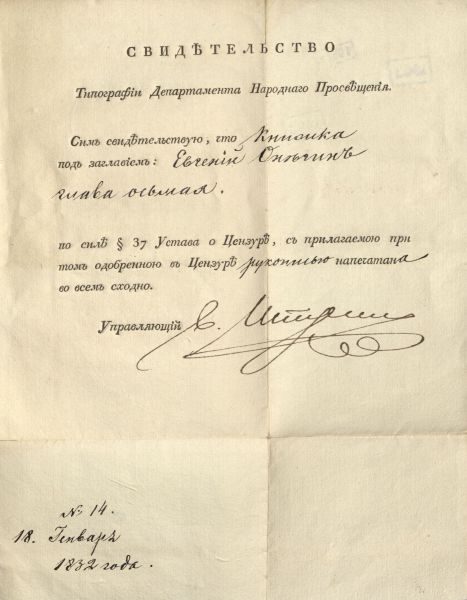 СВИДѢТЕЛЬСТВО
Типографіи Департамента Народнаго Просвѣщенія.
Симъ свидѣтельствую, что Книжка
подъ заглавіемъ: Евгеній Онѣгинъ
глава осьмая.
по силѣ § 37 Устава о Цензурѣ, съ прилагаемою при
томъ одобренною въ Цензурѣ рукописью напечатана
во всемъ сходно.
Управляющій
№ 14.
18. Генваря
1832 года.